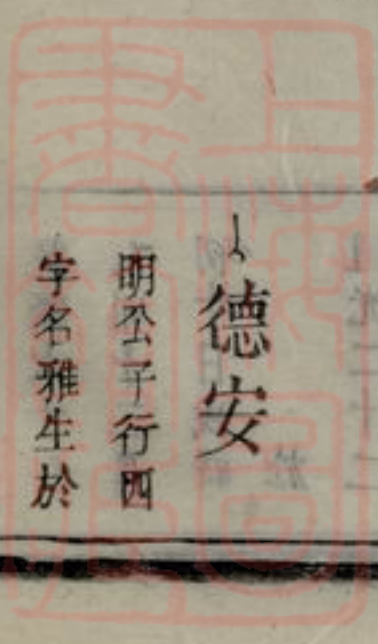 德安
明公子行四
字名雅生於